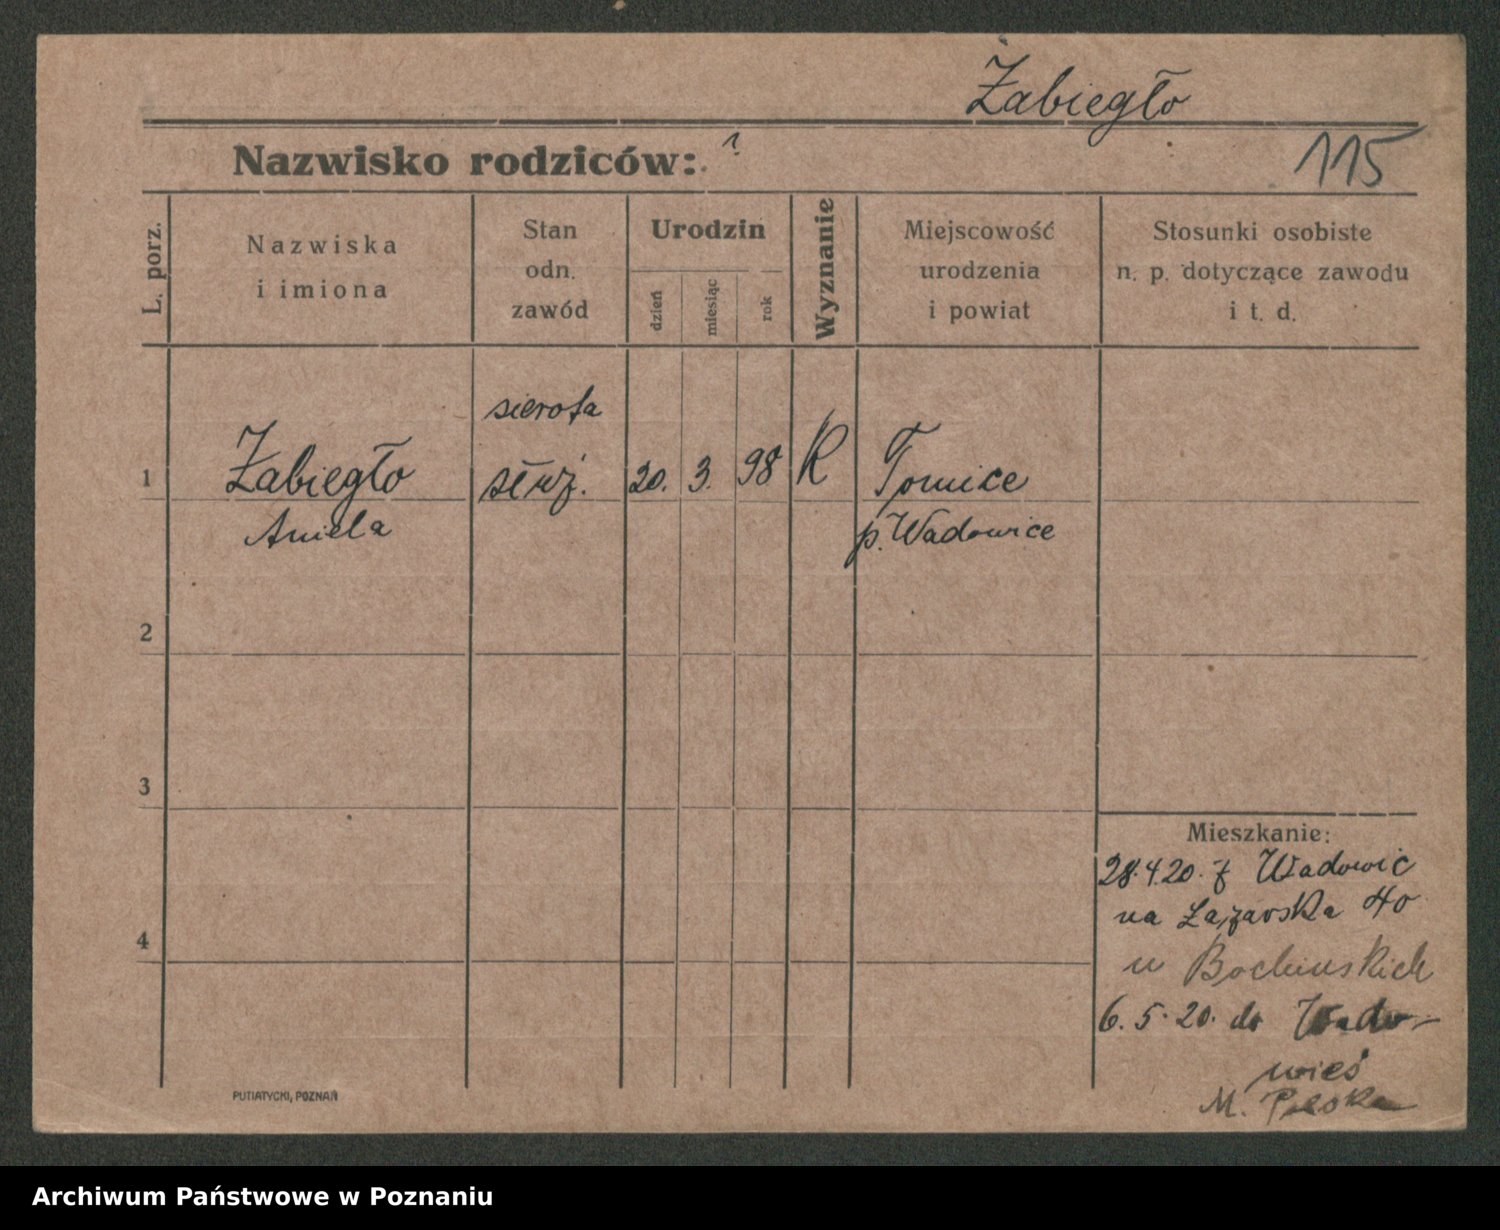 Żabiegło
115
Nazwisko rodziców: ?
L. porz.
Nazwiska
i imiona
Stan
odn.
zawód
Urodzin
dzień
miesiąc
rok
Wyznanie
Miejscowość
urodzenia
i powiat
Stosunki osobiste
n. p. dotyczące zawodu
i t. d.
sierota
1 Żabiegło służ. 20. 3. 98 K Tomice
Aniela p. Wadowice
2
3
4
Mieszkanie:
28.4.20. z Wadowic
na Łazarska 40
u Bochinskich
6. 5. 20. do Wado-
wieś
M. Polska
PUTIATYCKI, POZNAŃ
Archiwum Państwowe w Poznaniu